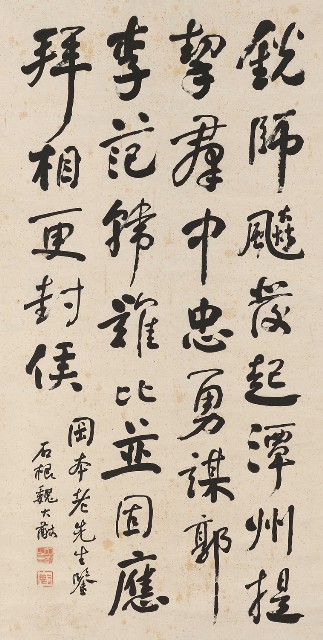 銳師飈發起潭州提
挈羣中忠勇謀郭
李范韓誰比並固應
拜相更封侯
岡本老先生鑒
石根魏大猷